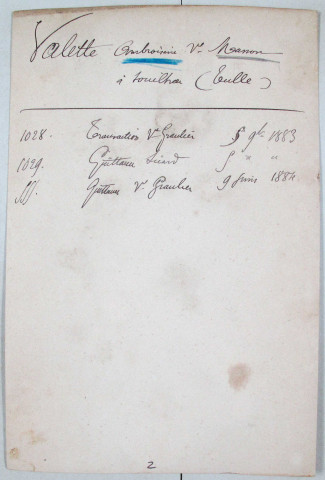 Valette Ambroisine Vᵉ Manon
à (Tulle)
1028. Transaction Vᵉ Graulier 9bre 1883
1029. Quittance Sicard " "
Quittance Vᵉ Graulier 9 Juin 1884
2